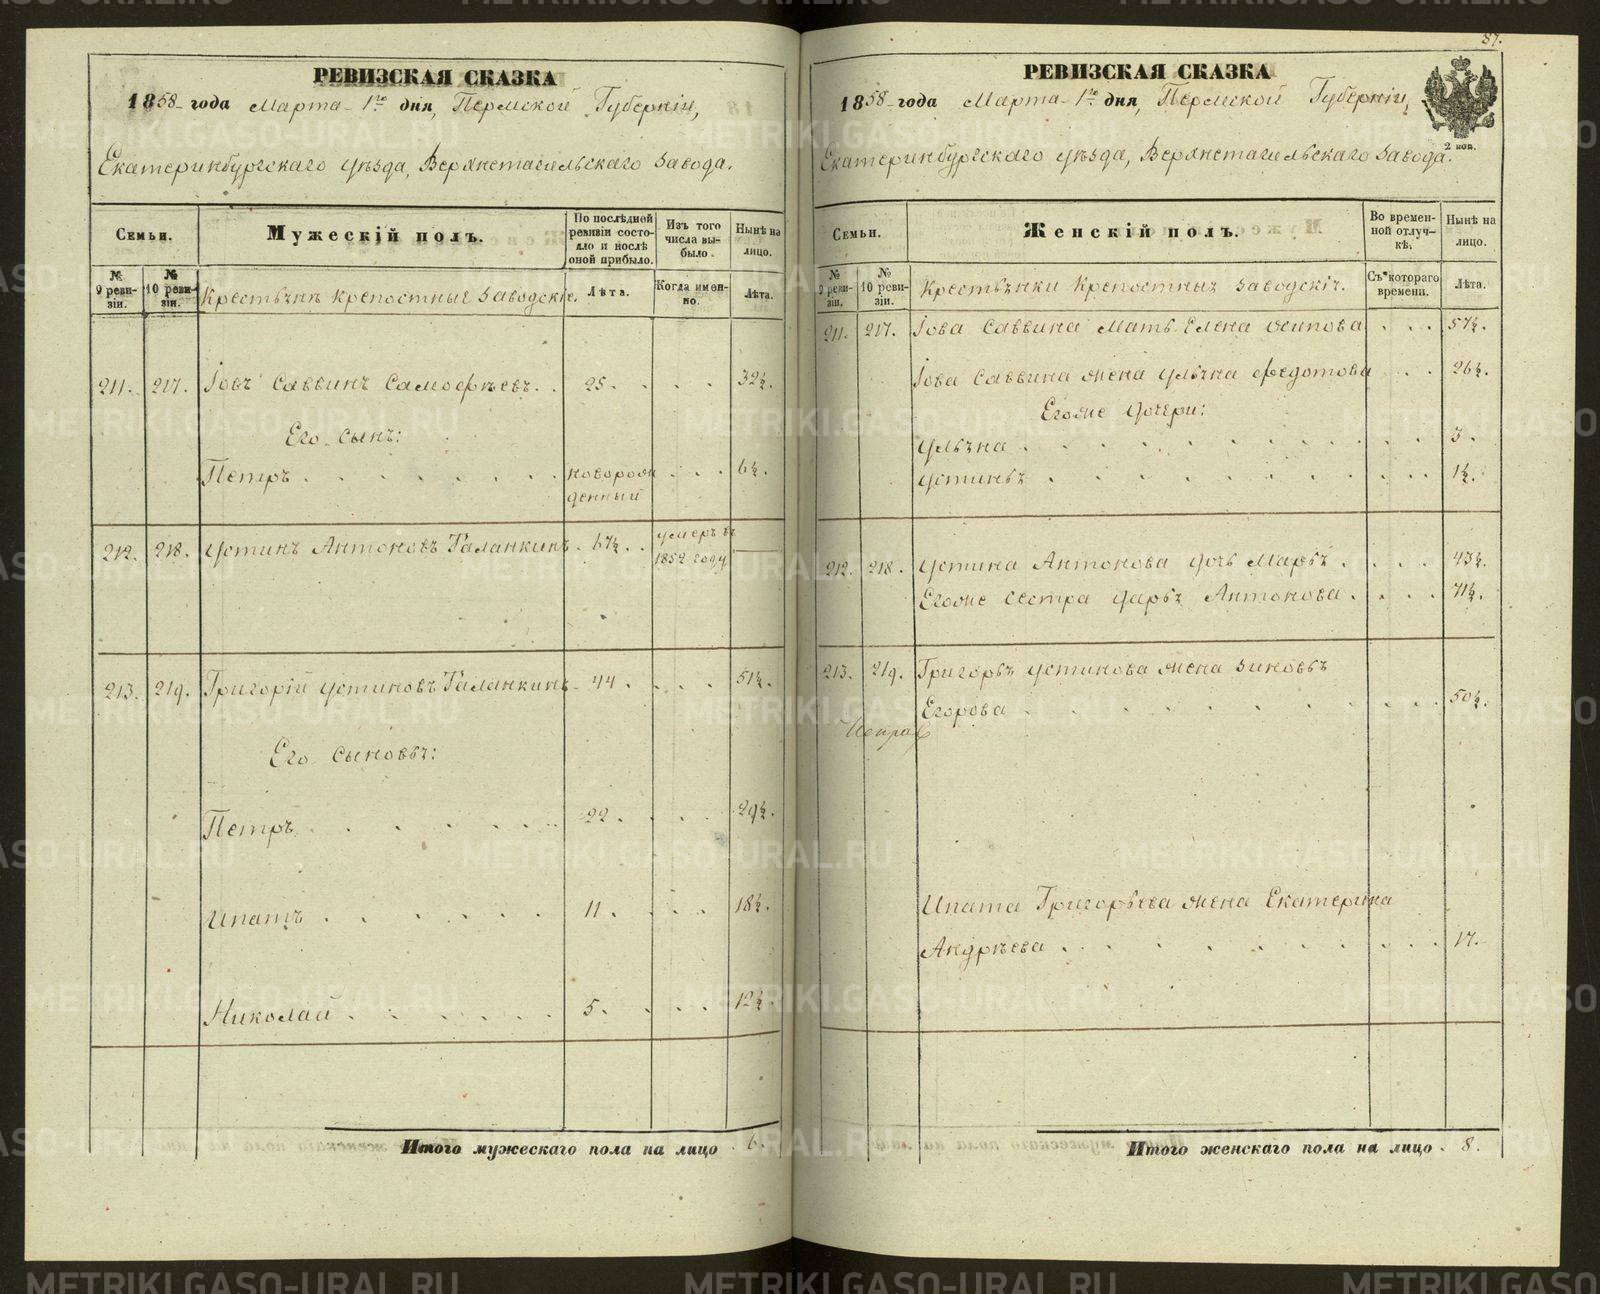 РЕВИЗСКАЯ СКАЗКА
1858 года Марта 1го дня, Пермской Губерніи,
Екатеринбургскаго уѣзда, Верхнетагильскаго Завода.
Семьи.
Мужескій полъ.
По послѣдней ревизіи состояло и послѣ оной прибыло.
Изъ того числа выбыло.
Нынѣ на лицо.
№ 9 ревизіи.
№ 10 ревизіи.
Крестьяне крепостные Заводскіе.
Лѣта.
Когда именно.
Лѣта.
211. 217. Іовъ Саввинъ 25. 32½.
Его сынъ:
Петръ новорожденный 6½.
212. 218. Устинъ Антоновъ Галанкинъ 67½. умеръ въ 1852 году
213. 219. Григорій Устиновъ Галанкинъ 44. 51½.
Его сыновья:
Петръ 22. 29½.
Ипатъ 11. 18½.
Николай 5. 12½.
Итого мужескаго пола на лицо 6.
87.
РЕВИЗСКАЯ СКАЗКА
1858 года Марта 1го дня, Пермской Губерніи,
2 коп.
Екатеринбургскаго уѣзда, Верхнетагильскаго Завода.
Семьи.
Женскій полъ.
Во временной отлучкѣ.
Нынѣ на лицо.
№ 9 ревизіи.
№ 10 ревизіи.
Крестьянки Крепостныя Заводскія.
Съ котораго времени.
Лѣта.
211. 217. Іова Саввина Мать Елена Осипова 57½.
Іова Саввина жена Ульяна Федотова 26½.
Егоже дочери:
Ульяна 3.
Устинья 1½.
212. 218. Устина Антонова дочь Марья 43½.
Егоже сестра Дарья Антонова 71½.
213. 219. Григорья Устинова жена Зиновья
Егорова 50½.
Ипата Григорьева жена Екатерина
Андрѣева 17.
Итого женскаго пола на лицо 8.
METRIKI.GASO-URAL.RU